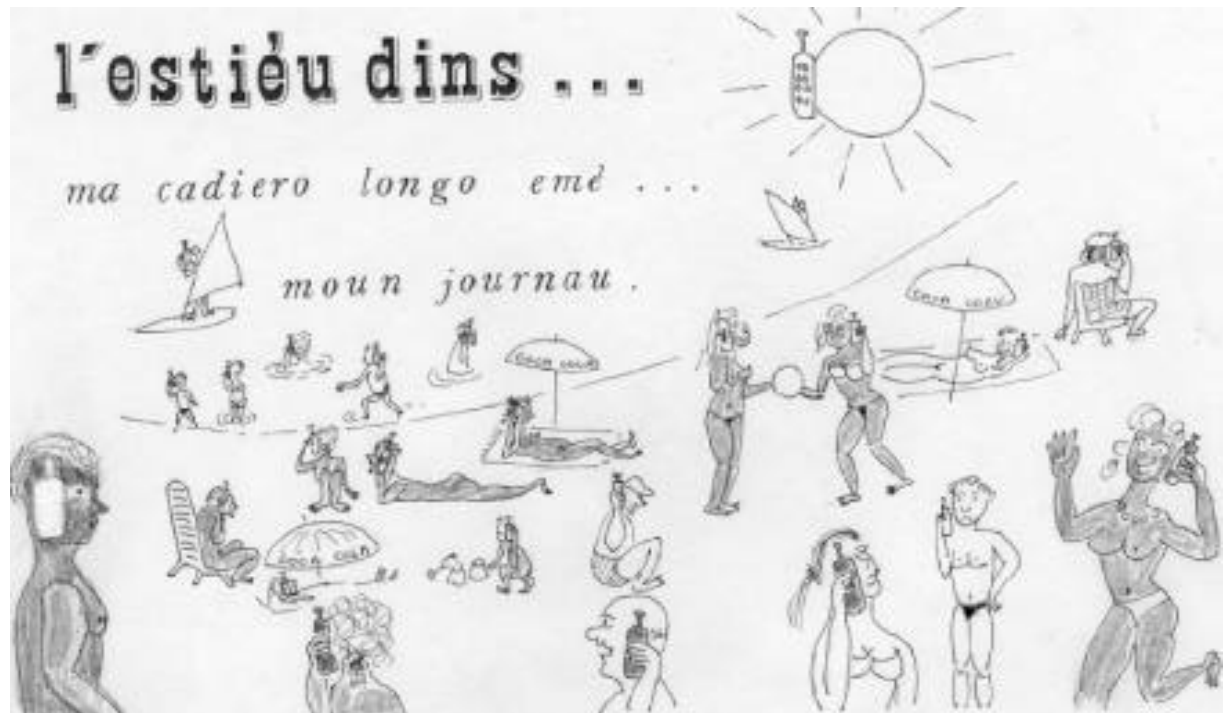 l'estiéu dins ...
ma cadiero longo emé ...
moun journau .
COCA COLA
COCA COLA
COCA COLA